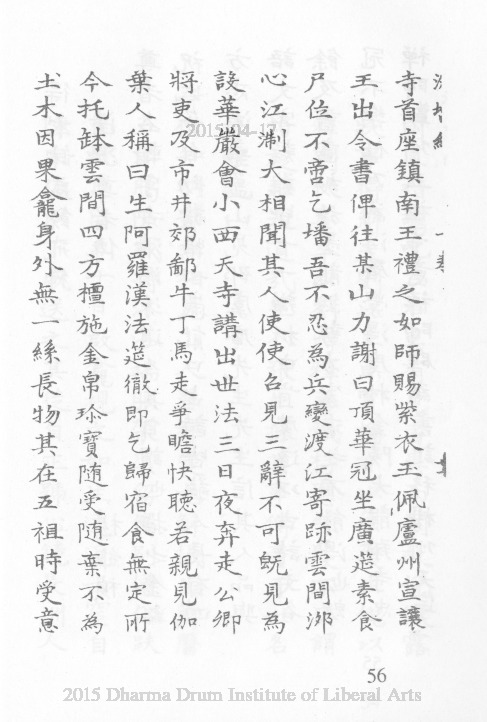 寺首座鎮南王禮之如師賜紫衣玉佩廬州宣讓
王出令書俾往某山力謝曰頂華冠坐廣莚素食
尸位不啻乞墦吾不忍為兵變渡江寄跡雲間
心江淛大相聞其人使使召見三辭不可既見為
設華嚴會小西天寺講出世法三日夜奔走公卿
將吏及市井郊鄙牛丁馬走爭瞻快聽若親見伽
葉人稱曰生阿羅漢法莚徹即乞歸宿食無定所
今托缽雲間四方檀施金帛珎寶随受随棄不為
土木因果龕身外無一絲長物其在五祖時受意
56
2015-04-17
2015 Dharma Drum Institute of Liberal Arts